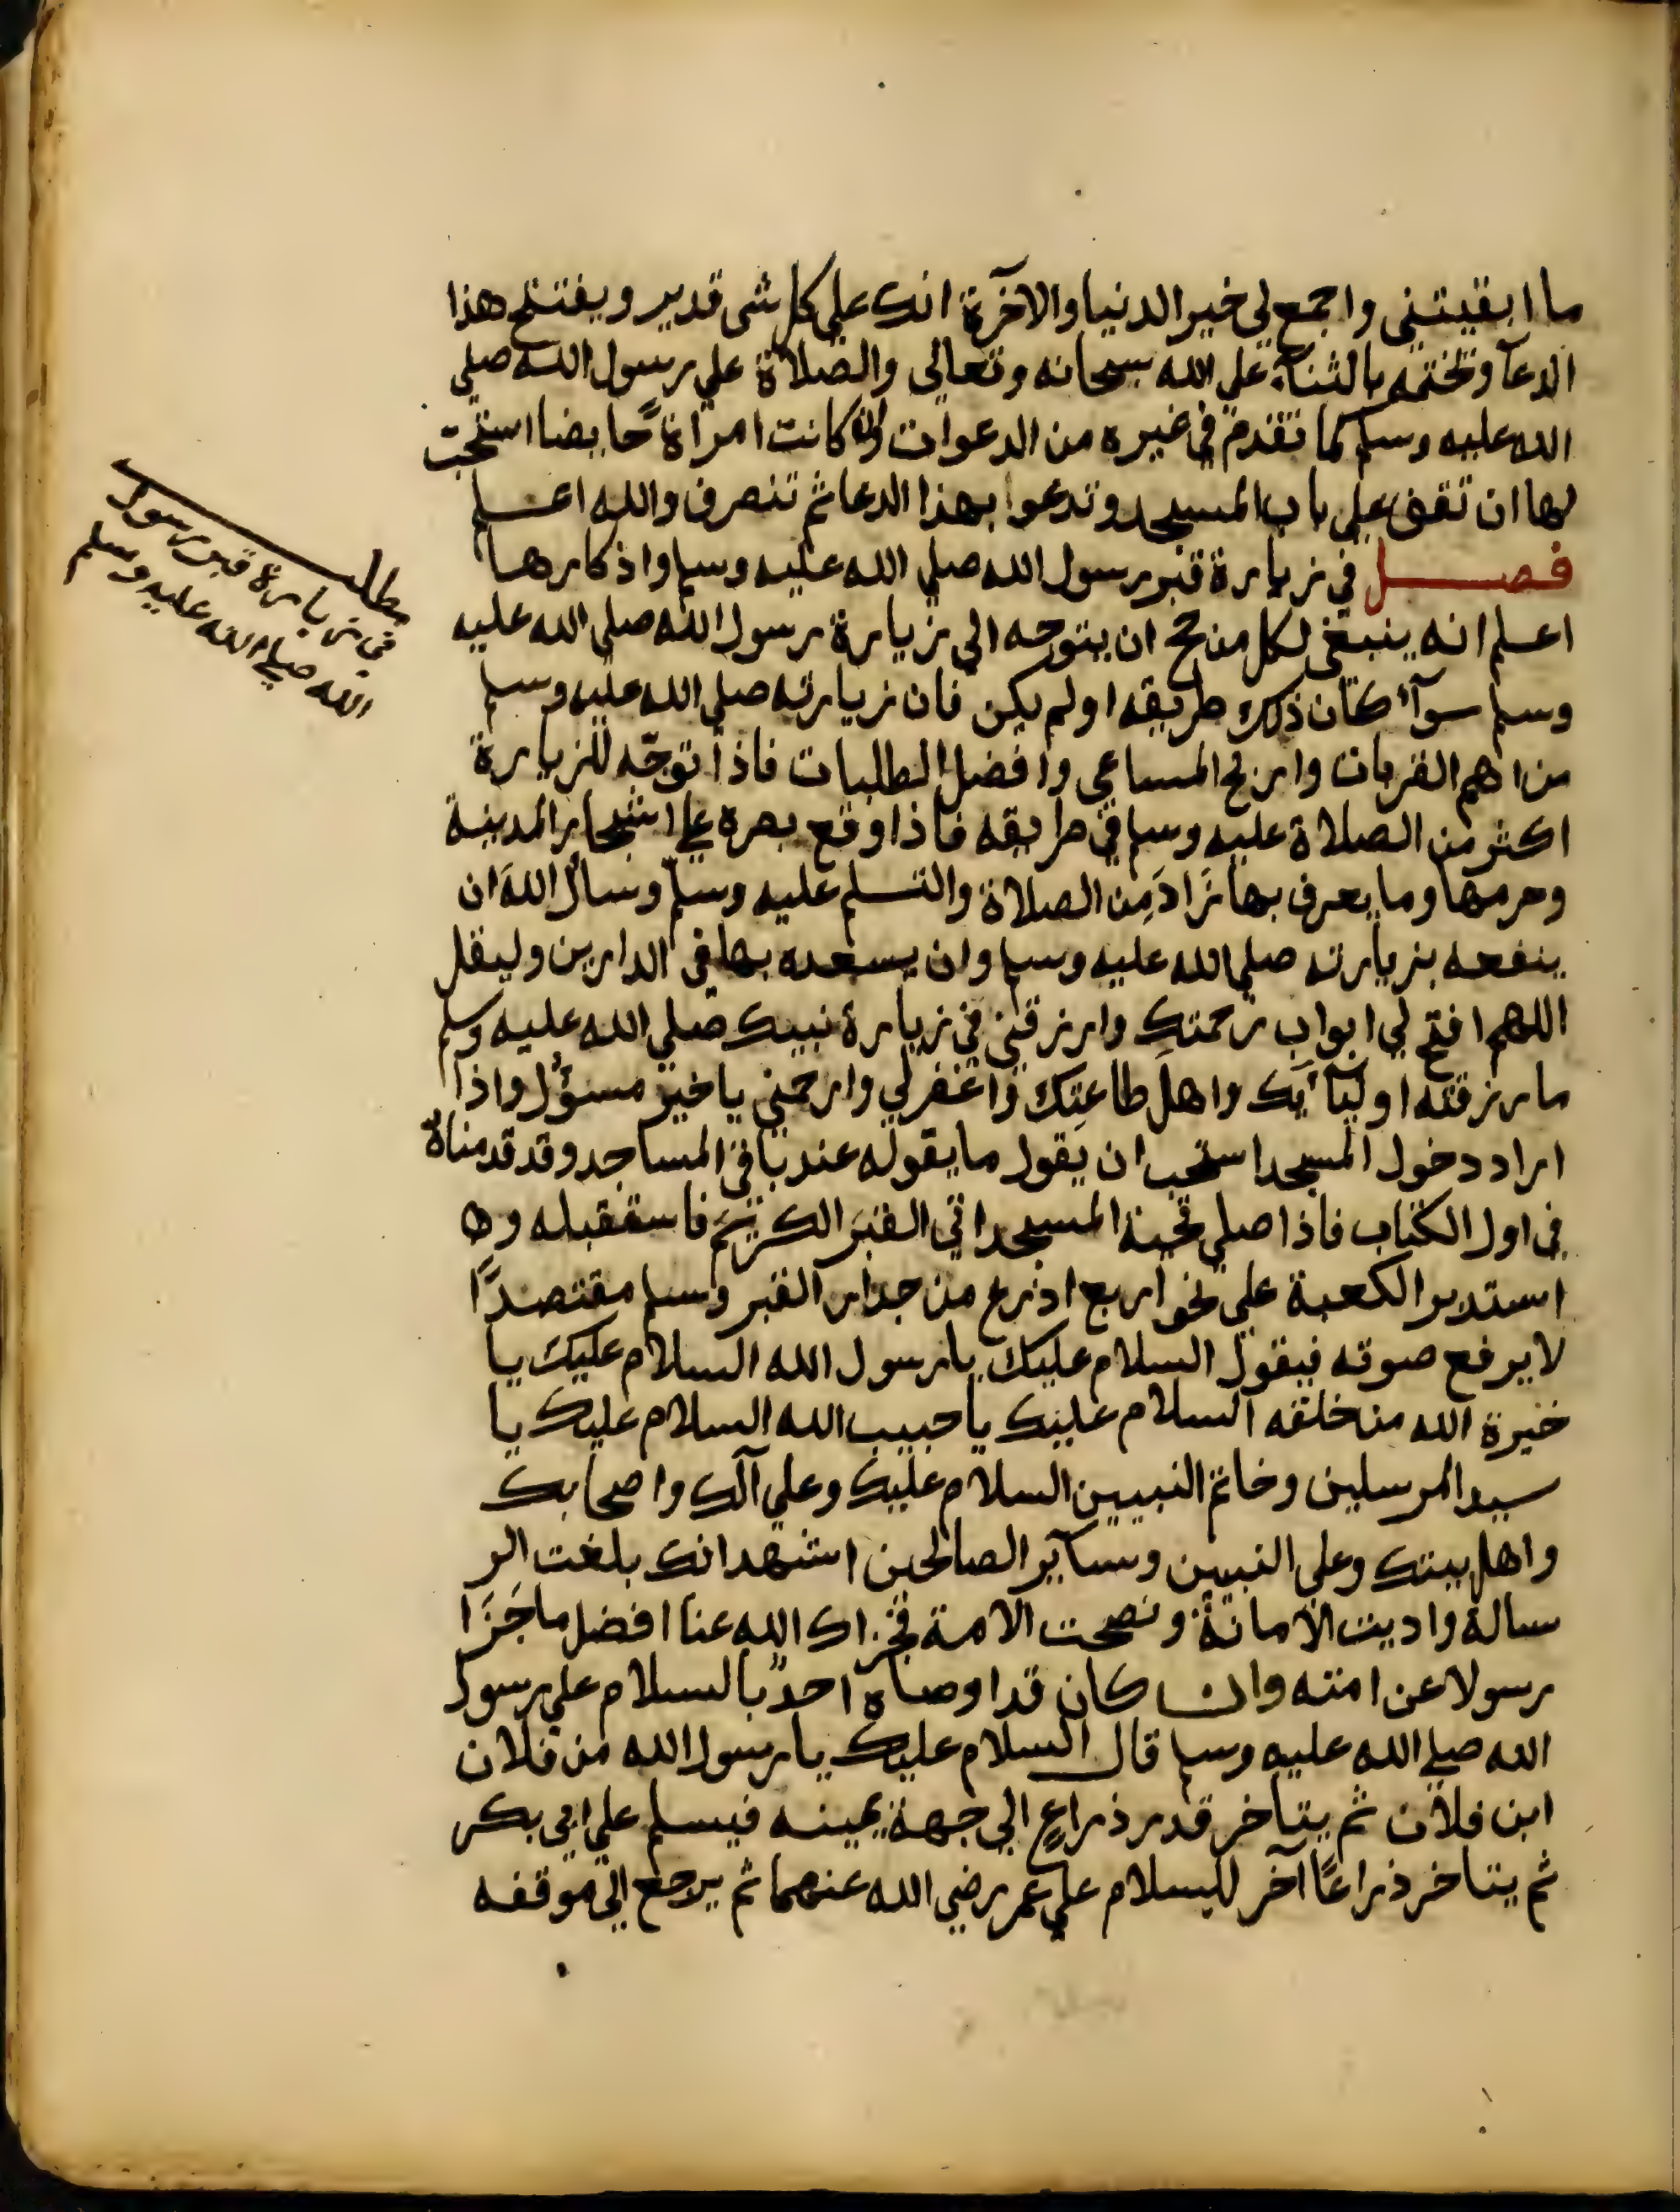 ما ابقيتني واجمع لي خير الدنيا والآخرة انك علي كل شي قدير ويفتتح هذا
الدعآ وتختمه بالثنآء علي الله سبحانه وتعالي والصلاة علي رسول الله صلي
الله عليه وسلم كما تقدم في غيره من الدعوات وان كانت امراةً حايضا استحبت
لها ان تقف علي باب المسجد وتدعوا بهذا الدعا ثم تنصرف والله اعلم
فصل في زيارة قبر رسول الله صلي الله عليه وسلم واذكارها
اعلم انه ينبغي لكل من حج ان يتوجه الي زيارة رسول الله صلي الله عليه
وسلم سوآء كان ذلك طريقه او لم يكن فان زيارته صلي الله عليه وسلم
من اهم القربات واربح المساعي وافضل الطلبات فاذا توجّه للزيارة
اكثر من الصلاة عليه وسلم في طريقه فاذا وقع بصره علي اشجار المدينة
وحرمها وما يعرف بها زَادَ مِن الصلاة والتسلم عليه وسلم وسأل اللهَ ان
ينفعه بزيارته صلي الله عليه وسلم وان يسعده بها في الدارين وليقل
اللهم افتح لي ابواب رحمتك وارزقني في زيارة نبيك صلي الله عليه وسلم
ما رزقته اوليآئك واهل طاعتك واغفر لي وارحمني يا خير مسؤل واذا
اراد دخول المسجد استحب ان يقول ما يقوله عند باقي المساجد وقد قدمناهُ
في اول الكتاب فاذا صلي تحية المسجد اتي القبرَ الكريم فاستقبله وها
استدبر الكعبة علي نحو اربع اذرع من جدار القبر وسلم مقتصدًا
لا يرفع صوته فيقول السلام عليك يا رسول الله السلام عليك يا
خيرة الله من خلقه السلام عليك يا حبيب الله السلام عليك يا
سيد المرسلين وخاتم النبيين السلام عليك وعلي آلك واصحابك
واهل بيتك وعلي النبيين وسآير الصالحين اشهد انك بلغت الر
سالة واديت الامانة ونصحت الامة فجزاك الله عنا افضل ما جَزَا
رسولا عن امته وان كان قد اوصاه احدٌ بالسلام علي رسول
الله صلي الله عليه وسلم قال السلام عليك يا رسول الله من فلان
ابن فلان ثم يتاخر قدر ذراعٍ الي جهة يمينه فيسلم علي ابي بكر
ثم يتاخر ذراعًا آخر للسلام علي عمر رضي الله عنهما ثم يرجع الي موقفه
مطلب
في زيارة قبر رسول
الله صلي الله عليه وسلم